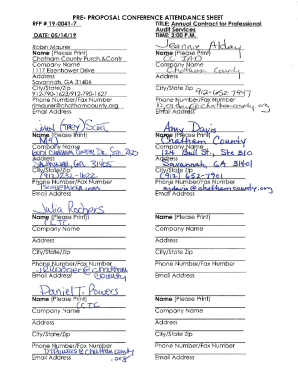 PRE- PROPOSAL CONFERENCE ATTENDANCE SHEET
RFP # 19-0041-7
TITLE: Annual Contract for Professional
Audit Services
DATE: 05/14/19
TIME: 2:00 P.M.
Robin Maurer
Name (Please Print)
Chatham County Purch & Contr
Company Name
1117 Eisenhower Drive
Address
Savannah, GA 31406
City/State/Zip
912-790-1623/912-790-1627
Phone Number/Fax Number
rmaurer@chathamcounty.org
Email Address
Jeannie Alday
Name (Please Print)
CC IAD
Company Name
Chatham County
Address
City/State/Zip
912-652-7947
Phone Number/Fax Number
Email Address
John (Trey) Scott
Name (Please Print)
Company Name
Address
Savannah, GA 31405
City/State/Zip
(912)232-1622
Phone Number/Fax Number
Email Address
Amy Davis
Name (Please Print)
Chatham County
Company Name
124 Bull St., Ste 310
Address
Savannah, GA 31401
City/State/Zip
(912) 652-7901
Phone Number/Fax Number
ajdavis@chathamcounty.org
Email Address
Julia Rodgers
Name (Please Print)
CCTC
Company Name
Address
City/State/Zip
Phone Number/Fax Number
Email Address
Name (Please Print)
Company Name
Address
City/State/Zip
Phone Number/Fax Number
Email Address
Daniel T. Powers
Name (Please Print)
CCTC
Company Name
Address
City/State/Zip
Phone Number/Fax Number
dtpowers@chathamcounty
.org
Email Address
Name (Please Print)
Company Name
Address
City/State/Zip
Phone Number/Fax Number
Email Address